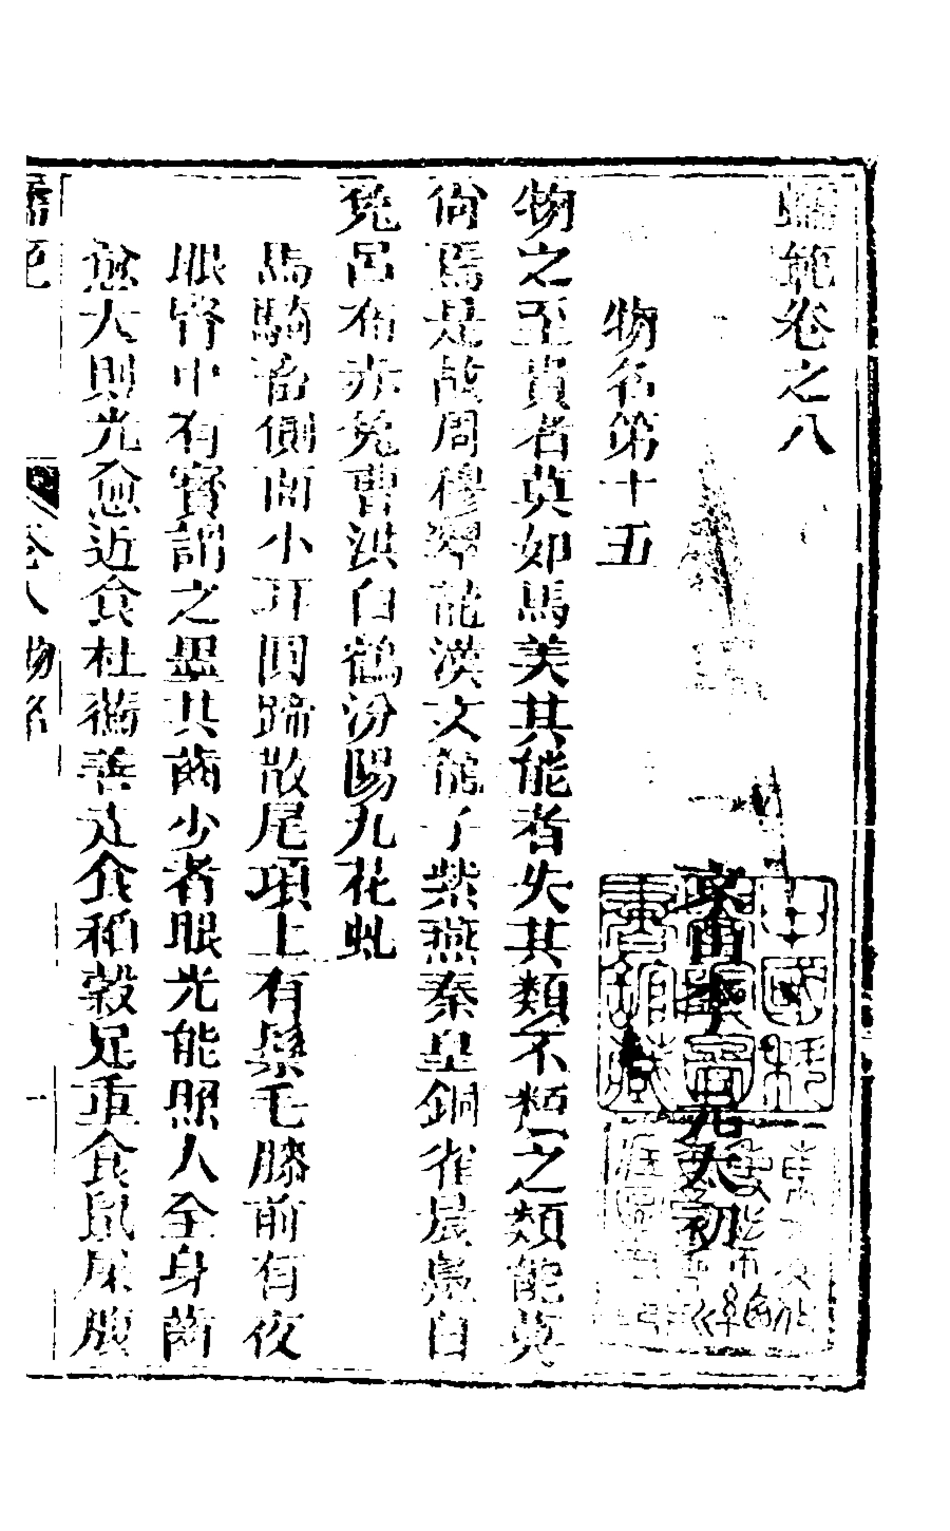 蠕範卷之八
京山李元太初
物名第十五
物之至貴者莫如馬美其能者失其類不類之類能莫
尙焉是故周穆翠龍漢文龍子紫燕秦皇銅雀晨鳧白
兔呂布赤兔曹洪白鶴汾陽九花虬
馬騎畜側面小耳圓蹄散尾項上有鬃毛膝前有夜
眼腎中有實謂之墨其齒少者眼光能照人全身齒
愈大則光愈近食杜蘅善走食稻穀足重食鼠屎腹
蠕範 卷八 物名 一